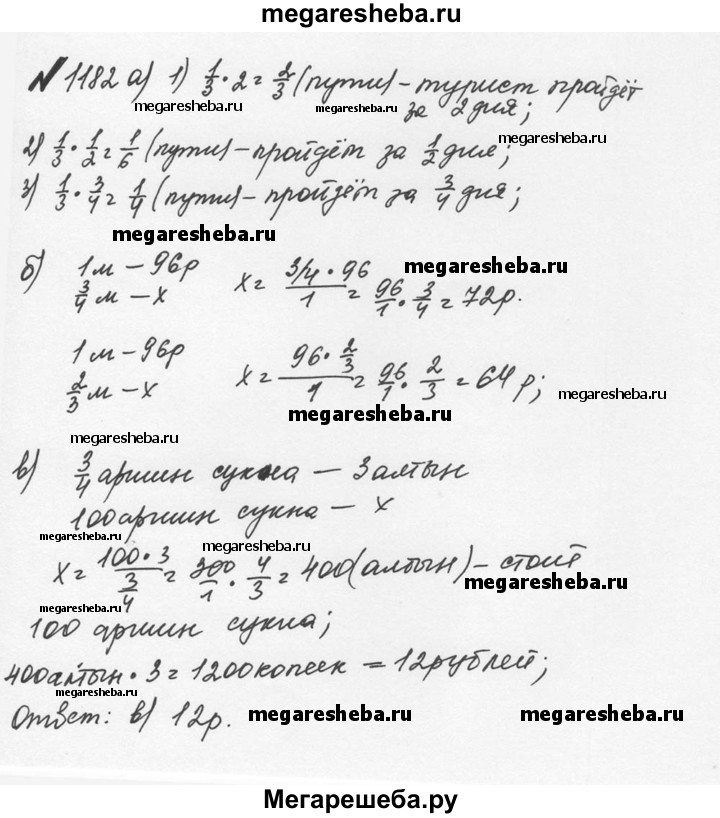 megaresheba.ru
№1182 а) 1) 1/3 · 2 = 2/3 (пути) – турист пройдёт
megaresheba.ru megaresheba.ru за 2 дня; megaresheba.ru
2) 1/3 · 1/2 = 1/6 (пути) – пройдём за 1/2 дня;
3) 1/3 · 3/4 = 1/4 (пути) – пройдём за 3/4 дня;
megaresheba.ru
б) 1м – 96р x = 3/4 · 96 / 1 = 96/1 · 3/4 = 72р.
3/4 м – x megaresheba.ru
1м – 96р x = 96 · 2/3 / 1 = 96/1 · 2/3 = 64 р;
2/3 м – x
megaresheba.ru megaresheba.ru
megaresheba.ru
в) 3/4 аршин сукна – 3 алтын
100 аршин сукна – x
megaresheba.ru megaresheba.ru
x = 100 · 3 / 3/4 = 300/1 · 4/3 = 400 (алтын) – стоит
megaresheba.ru
megaresheba.ru
100 аршин сукна;
400 алтын · 3 = 1200 копеек = 12 рублей;
megaresheba.ru megaresheba.ru
Ответ: в) 12р. megaresheba.ru
megaresheba.ru
Мегарешеба.ру